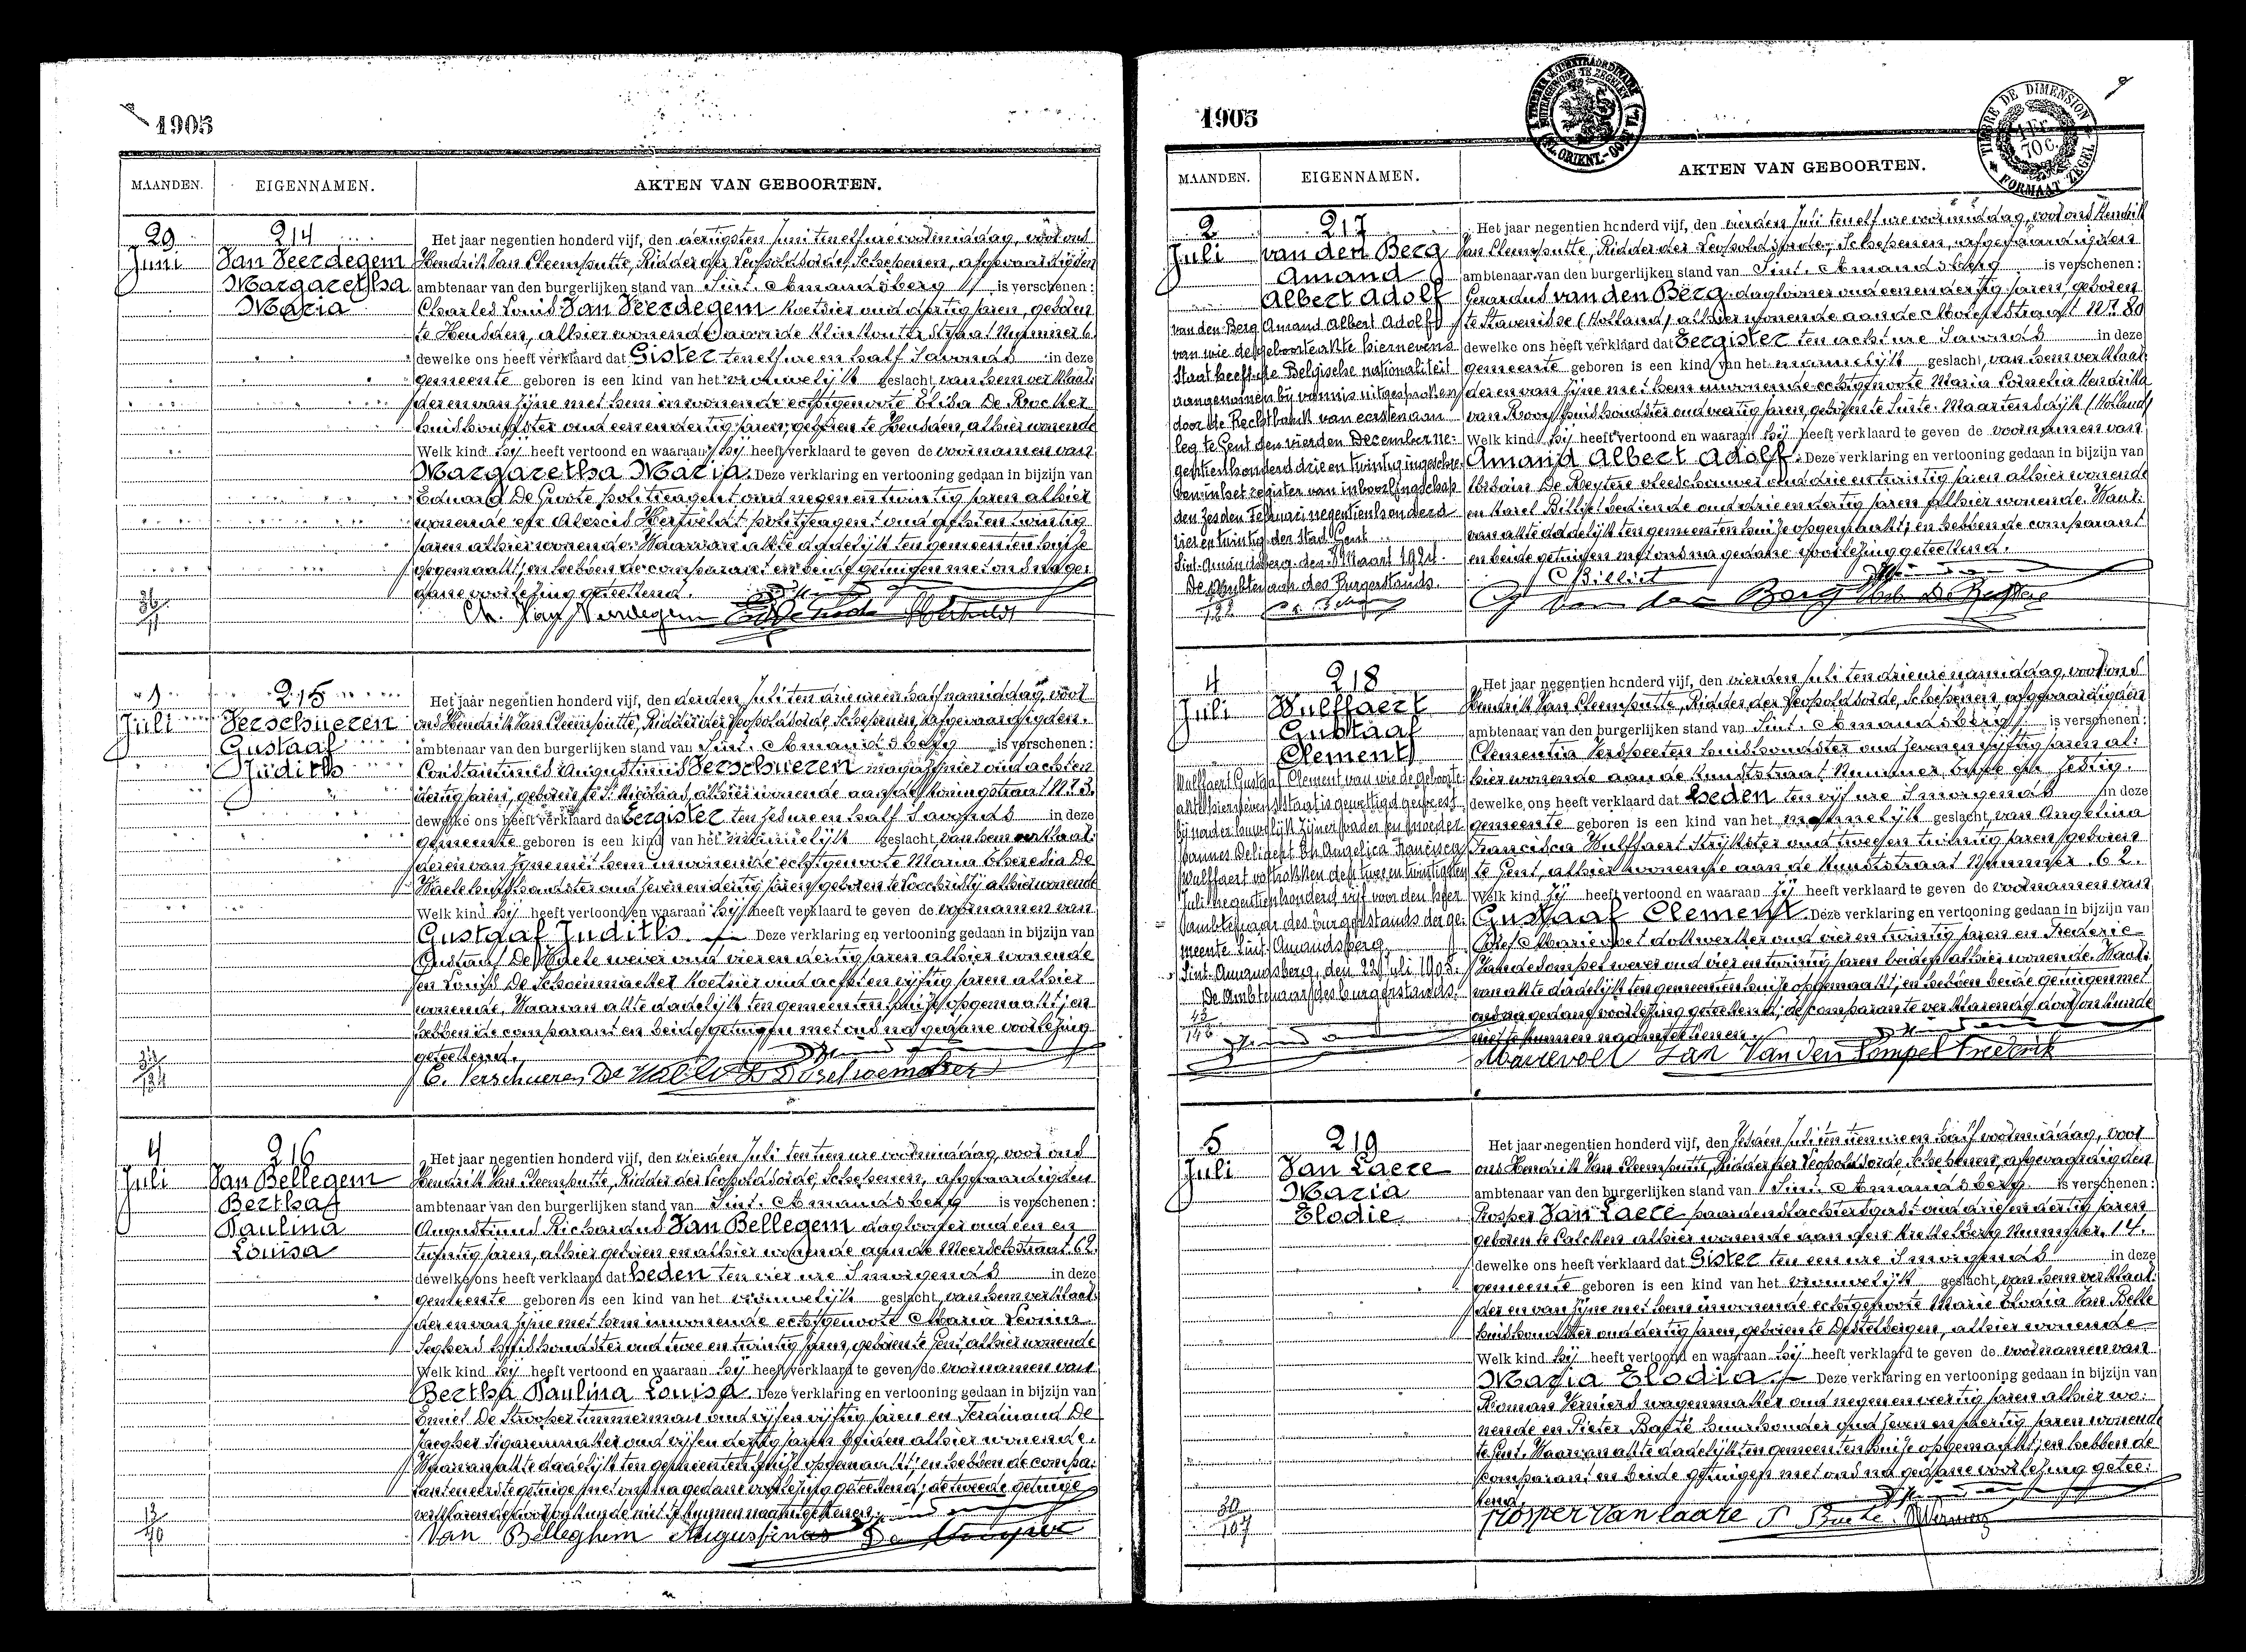 1905
MAANDEN. EIGENNAMEN. AKTEN VAN GEBOORTEN.
29 Juni
214
Van Veerdegem
Margaretha
Maria
Het jaar negentien honderd vijf, den dertigsten Juni ten elf ure voormiddag, vóór ons
Hendrik Van Cleemputte, Ridder der Leopoldsorde, Schepenen, afgevaardigden
ambtenaar van den burgerlijken stand van Sint-Amandsberg is verschenen:
Charles Louis Van Veerdegem koetsier oud dertig jaren, geboren
te Heusden, alhier wonende aan de Klinkouter Straat Nummer 6
dewelke ons heeft verklaard dat Gister ten elf ure en half 's avonds in deze
gemeente geboren is een kind van het vrouwelijk geslacht, van hem verklaar-
der en van zijne met hem inwonende echtgenoote Elisa De
huishoudster oud een en dertig jaren, geboren te Heusden, alhier wonende
Welk kind hij heeft vertoond en waaraan hij heeft verklaard te geven de voornamen van
Margaretha Maria. Deze verklaring en vertooning gedaan in bijzijn van
Eduard De Groote politieagent oud negen en twintig jaren alhier
wonende en politieagent oud acht en twintig
jaren alhier wonende. Waarvan akte dadelijk ten gemeentenhuize
opgemaakt, en hebben de comparant en beide getuigen met ons na ge-
dane voorlezing geteekend.
1
Juli
215
Verschueren
Gustaaf
Judith
Het jaar negentien honderd vijf, den derden Juli ten drie ure en half namiddag, vóór
ons Hendrik Van Cleemputte, Ridder der Leopoldsorde, Schepenen, afgevaardigden
ambtenaar van den burgerlijken stand van Sint-Amandsberg is verschenen:
Constantinus Augustinus Verschueren magazijnier oud acht en
dertig jaren, geboren te St Nicolaas, alhier wonende aan de Koningstraat Nr 3.
dewelke ons heeft verklaard dat Eergister ten zes ure en half 's avonds in deze
gemeente geboren is een kind van het mannelijk geslacht, van hem verklaar-
der en van zijne met hem inwonende echtgenoote Maria Theresia De
Waele huishoudster oud zeven en dertig jaren, geboren te Loochristy, alhier wonende
Welk kind hij heeft vertoond en waaraan hij heeft verklaard te geven de voornamen van
Gustaaf Judith. Deze verklaring en vertooning gedaan in bijzijn van
Gustaaf De Waele wever oud vier en dertig jaren alhier wonende
en Louis De Schoenmaeker koetsier oud acht en vijftig jaren alhier
wonende. Waarvan akte dadelijk ten gemeentenhuize opgemaakt, en
hebben de comparant en beide getuigen met ons na gedane voorlezing
geteekend.
C. Verschueren
4
Juli
216
Van Bellegem
Bertha
Paulina
Louisa
Het jaar negentien honderd vijf, den vierden Juli ten tien ure voormiddag, voor ons
Hendrik Van Cleemputte, Ridder der Leopoldsorde, Schepenen, afgevaardigden
ambtenaar van den burgerlijken stand van Sint-Amandsberg is verschenen:
Augustinus Richardus Van Bellegem dagloner oud een en
twintig jaren, alhier geboren en alhier wonende aan de Meerschstraat 62.
dewelke ons heeft verklaard dat heden ten vier ure 's morgends in deze
gemeente geboren is een kind van het vrouwelijk geslacht, van hem verklaar-
der en van zijne met hem inwonende echtgenoote Maria Leonia
Seghers huishoudster oud twee en twintig jaren, geboren te Gent, alhier wonende
Welk kind hij heeft vertoond en waaraan hij heeft verklaard te geven de voornamen van
Bertha Paulina Louisa. Deze verklaring en vertooning gedaan in bijzijn van
Emiel De Strooper timmerman oud vijf en vijftig jaren en Ferdinand De
Jaegher sigarenmaker oud vijf en dertig jaren beiden alhier wonende.
Waarvan akte dadelijk ten gemeentenhuize opgemaakt, en hebben de compa-
rant en eerste getuige met ons na gedane voorlezing geteekend; de tweede getuige
verklarende door onkunde niet te kunnen naamteekenen.
Van Belleghem Augustinus
1905
MAANDEN. EIGENNAMEN. AKTEN VAN GEBOORTEN.
TIMBRE DE DIMENSION
1 Fr. 70 c.
FORMAAT ZEGEL
2
Juli
217
van den Berg
Amand
Albert Adolf
van den Berg Amand Albert Adolf
van wie de geboorteakte hiernevens
staat heeft de Belgische nationaliteit
aangenomen bij vonnis uitgesproken
door de Rechtbank van eersten aan-
leg te Gent den vierden December ne-
gentienhonderd drie en twintig ingeschre-
ven in het register van inboorlingschap
den zesden Februari negentienhonderd
vier en twintig der stad Gent.
Sint-Amandsberg den 7 Maart 1924.
De Ambtenaar des Burgerstands.
Het jaar negentien honderd vijf, den vierden Juli ten elf ure voormiddag, voor ons Hendrik
Van Cleemputte, Ridder der Leopoldsorde, Schepenen, afgevaardigden
ambtenaar van den burgerlijken stand van Sint-Amandsberg is verschenen:
Gerardus van den Berg dagloner oud een en dertig jaren, geboren
te Stavenisse (Holland) alhier wonende aan de Molenstraat Nr 80
dewelke ons heeft verklaard dat Eergister ten acht ure 's avonds in deze
gemeente geboren is een kind van het mannelijk geslacht, van hem verklaar-
der en van zijne met hem inwonende echtgenoote Maria Cornelia Hendrika
van Rooy huishoudster oud veertig jaren, geboren te Sinte-Maartensdijk (Holland)
Welk kind hij heeft vertoond en waaraan hij heeft verklaard te geven de voornamen van
Amand Albert Adolf. Deze verklaring en vertooning gedaan in bijzijn van
Urbain De Reytere vleeschouwer oud drie en twintig jaren alhier wonende
en Karel Billiet bediende oud drie en dertig jaren alhier wonende. Waar-
van akte dadelijk ten gemeentenhuize opgemaakt, en hebben de comparant
en beide getuigen met ons na gedane voorlezing geteekend.
C Billiet
G van den Berg
4
Juli
218
Wulffaert
Gustaaf
Clement
Wulffaert Gustaaf Clement van wie de geboorte-
akte hiernevens staat is gewettigd geweest
bij nader huwelijk zijner vader en moeder
Joannes Deligent en Angelica Francisca
Wulffaert voltrokken den twee en twintigsten
Juli negentienhonderd vijf voor den heer
ambtenaar des burgerstands der ge-
meente Sint-Amandsberg.
Sint-Amandsberg, den 22 Juli 1905.
De Ambtenaar des burgerstands.
Het jaar negentien honderd vijf, den vierden Juli ten drie ure namiddag, voor ons
Hendrik Van Cleemputte, Ridder der Leopoldsorde, Schepenen, afgevaardigden
ambtenaar van den burgerlijken stand van Sint-Amandsberg is verschenen:
Clementia Verspeeten huishoudster oud zeven en vijftig jaren al-
hier wonende aan de Kunststraat Nummer twee en zestig.
dewelke ons heeft verklaard dat heden ten vijf ure 's morgends in deze
gemeente geboren is een kind van het mannelijk geslacht, van Angelina
Francisca Wulffaert strijkster oud twee en twintig jaren, geboren
te Gent, alhier wonende aan de Kunststraat Nummer 62.
Welk kind zij heeft vertoond en waaraan zij heeft verklaard te geven de voornamen van
Gustaaf Clement. Deze verklaring en vertooning gedaan in bijzijn van
oud vier en twintig jaren en Frederic
Vandesompel wever oud vier en twintig jaren beiden alhier wonende. Waar-
van akte dadelijk ten gemeentenhuize opgemaakt, en hebben beide getuigen met
ons na gedane voorlezing geteekend; de comparante verklarende door onkunde
niet te kunnen naamteekenen.
5
Juli
219
Van Laere
Maria
Elodie
Het jaar negentien honderd vijf, den zesden Juli ten tien ure en half voormiddag, voor
ons Hendrik Van Cleemputte, Ridder der Leopoldsorde, Schepenen, afgevaardigden
ambtenaar van den burgerlijken stand van Sint-Amandsberg is verschenen:
Prosper Van Laere paardenslachtersgast oud drie en dertig jaren
geboren te Calcken alhier wonende aan den Nummer 14.
dewelke ons heeft verklaard dat Gister ten een ure 's morgends in deze
gemeente geboren is een kind van het vrouwelijk geslacht, van hem verklaar-
der en van zijne met hem inwonende echtgenoote Marie Elodia Van Belle
huishoudster oud dertig jaren, geboren te Destelbergen, alhier wonende
Welk kind hij heeft vertoond en waaraan hij heeft verklaard te geven de voornamen van
Maria Elodia. Deze verklaring en vertooning gedaan in bijzijn van
Roman Verniers wagenmaker oud negen en veertig jaren alhier wo-
nende en Pieter Baeté huurhouder oud zeven en veertig jaren wonende
te Gent. Waarvan akte dadelijk ten gemeentenhuize opgemaakt, en hebben de
comparant en beide getuigen met ons na gedane voorlezing getee-
kend.
Prosper Van laare